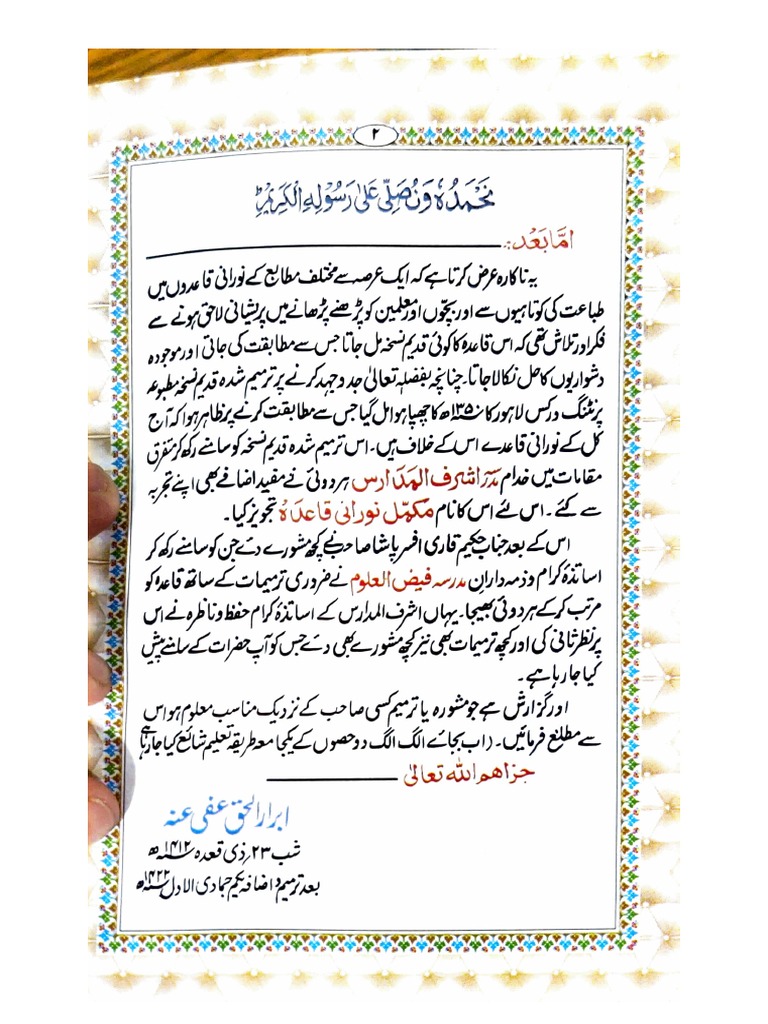 ۲
نَحْمَدُهٗ وَنُصَلِّیْ عَلٰی رَسُوْلِهِ الْکَرِیْمِ
امّا بَعْد:
یہ ناکارہ عرض کرتا ہے کہ ایک عرصہ سے مختلف مطابع کے نورانی قاعدوں میں
طباعت کی کوتاہیوں سے اور بچّوں اور معلمین کو پڑھنے پڑھانے میں پریشانی لاحق ہونے سے
فکر اور تلاش تھی کہ اس قاعدہ کا کوئی قدیم نسخہ مل جاتا جس سے مطابقت کی جاتی اور موجودہ
دشواریوں کا حل نکالا جاتا۔ چنانچہ بفضلہ تعالیٰ جدوجہد کرنے پر ترمیم شدہ قدیم نسخہ مطبوعہ
پرنٹنگ ورکس لاہور کا ۱۳۵۰ھ کا چھپا ہوا مل گیا جس سے مطابقت کرنے پر ظاہر ہوا کہ آج
کل کے نورانی قاعدے اس کے خلاف ہیں۔ اس ترمیم شدہ قدیم نسخہ کو سامنے رکھ کر متفرق
مقامات میں خدام مدرسہ اشرف المدارس ہردوئی نے مفید اضافے بھی اپنے تجربہ
سے کئے۔ اس لئے اس کا نام مکمّل نورانی قاعدہ تجویز کیا۔
اس کے بعد جناب حکیم قاری افسر پاشا صاحب نے کچھ مشورے دئے جن کو سامنے رکھ کر
اساتذۂ کرام و ذمہ داران مدرسہ فیض العلوم نے ضروری ترمیمات کے ساتھ قاعدہ کو
مرتب کرکے ہردوئی بھیجا۔ یہاں اشرف المدارس کے اساتذۂ کرام حفظ و ناظرہ نے اس
پر نظر ثانی کی اور کچھ ترمیمات بھی نیز کچھ مشورے بھی دئے جس کو آپ حضرات کے سامنے پیش
کیا جا رہا ہے۔
اور گزارش ہے جو مشورہ یا ترمیم کسی صاحب کے نزدیک مناسب معلوم ہو اس
سے مطلع فرمائیں۔ (اب بجائے الگ الگ دو حصوں کے یکجا معہ طریقہ تعلیم شائع کیا جا رہا ہے
جزاهم الله تعالیٰ
ابرار الحق عفی عنہ
شب ۲۳؍ ذی قعدہ ۱۴۱۲ھ
بعد ترمیم و اضافہ یکم جمادی الاول ۱۴۲۲ھ